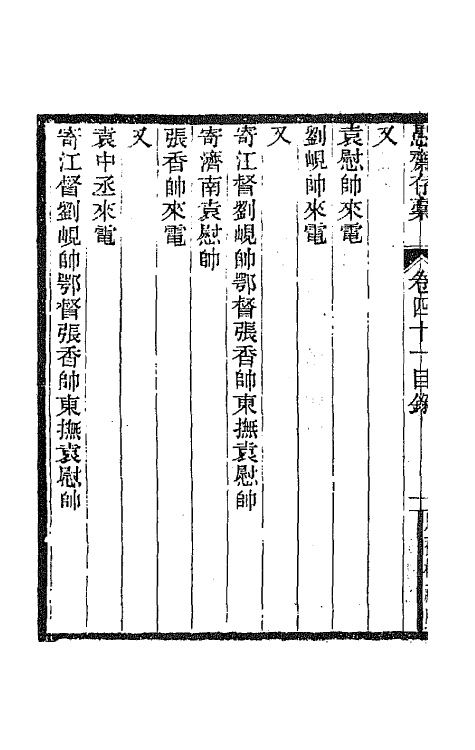 愚齋存稾 卷四十一目錄 一
又
袁慰帥來電
劉峴帥來電
又
寄江督劉峴帥鄂督張香帥東撫袁慰帥
寄濟南袁慰帥
張香帥來電
又
袁中丞來電
寄江督劉峴帥鄂督張香帥東撫袁慰帥